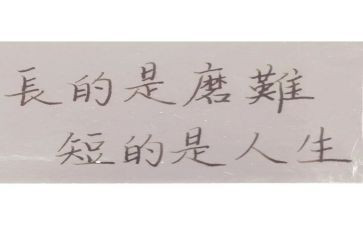 長的是磨難
短的是人生